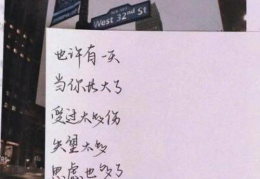 West 32nd St
也许有一天
当你长大了
受过太多伤
失望太多
思虑也多了